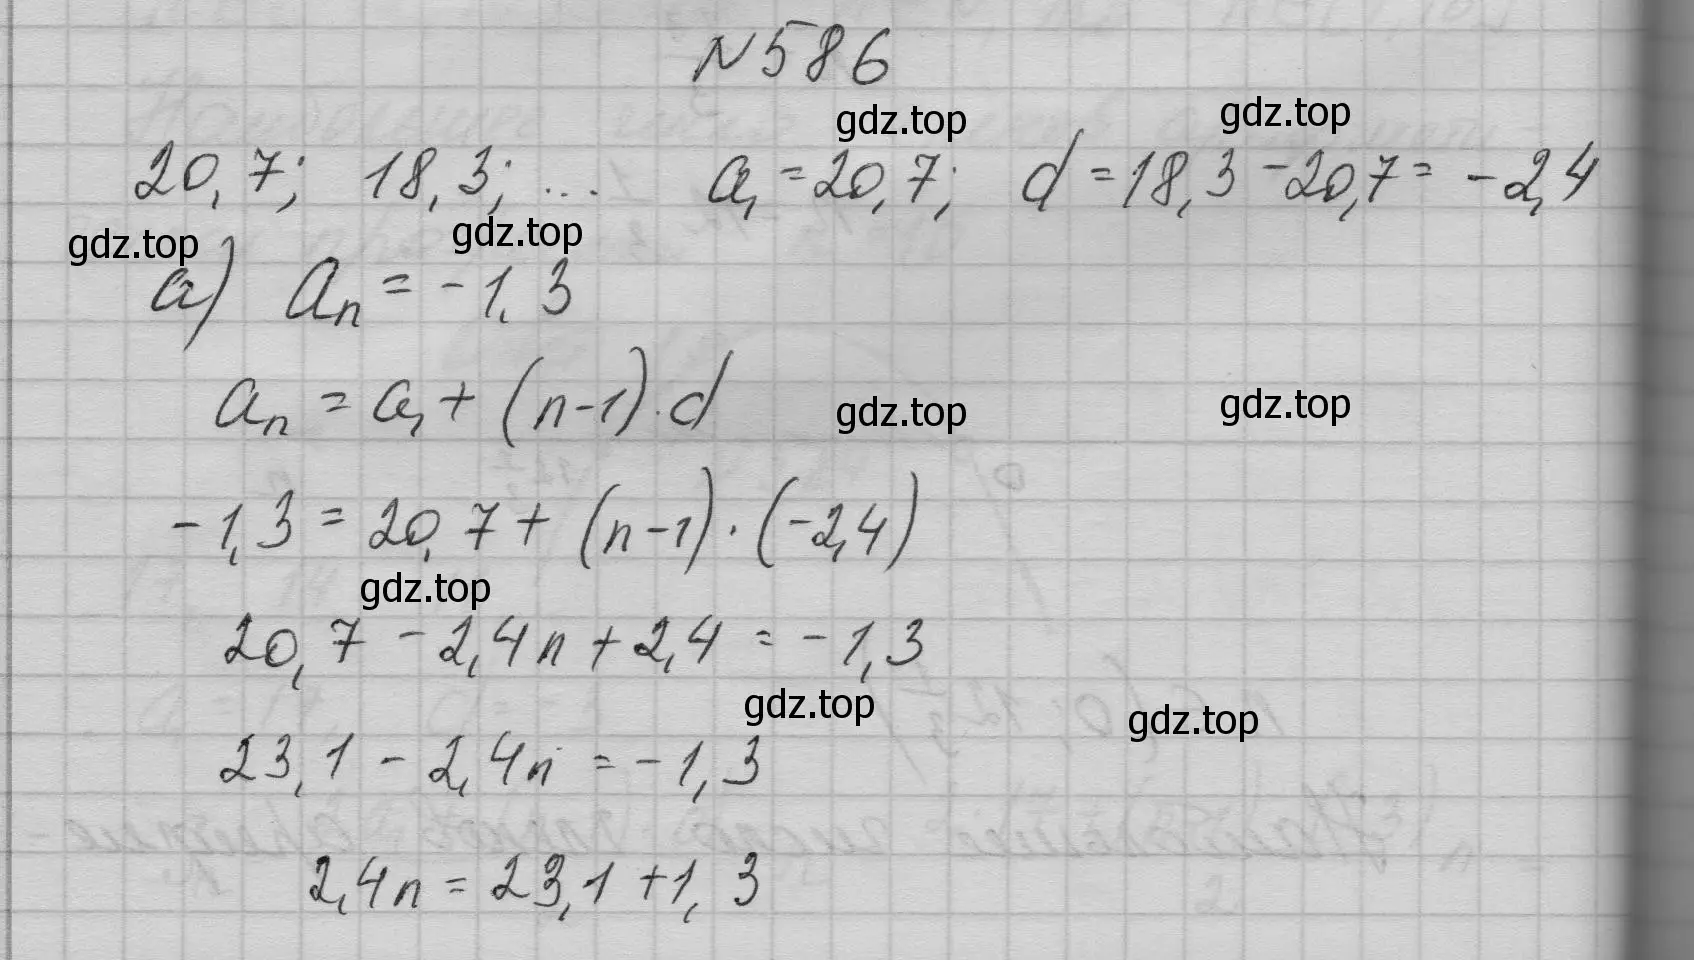 N586
gdz.top gdz.top
20,7; 18,3; ... a₁ = 20,7; d = 18,3 - 20,7 = - 2,4
gdz.top gdz.top
а) aₙ = - 1,3
aₙ = a₁ + (n-1)·d
gdz.top gdz.top
- 1,3 = 20,7 + (n-1)·(-2,4)
gdz.top
20,7 - 2,4n + 2,4 = - 1,3
gdz.top gdz.top
23,1 - 2,4n = - 1,3
2,4n = 23,1 + 1,3